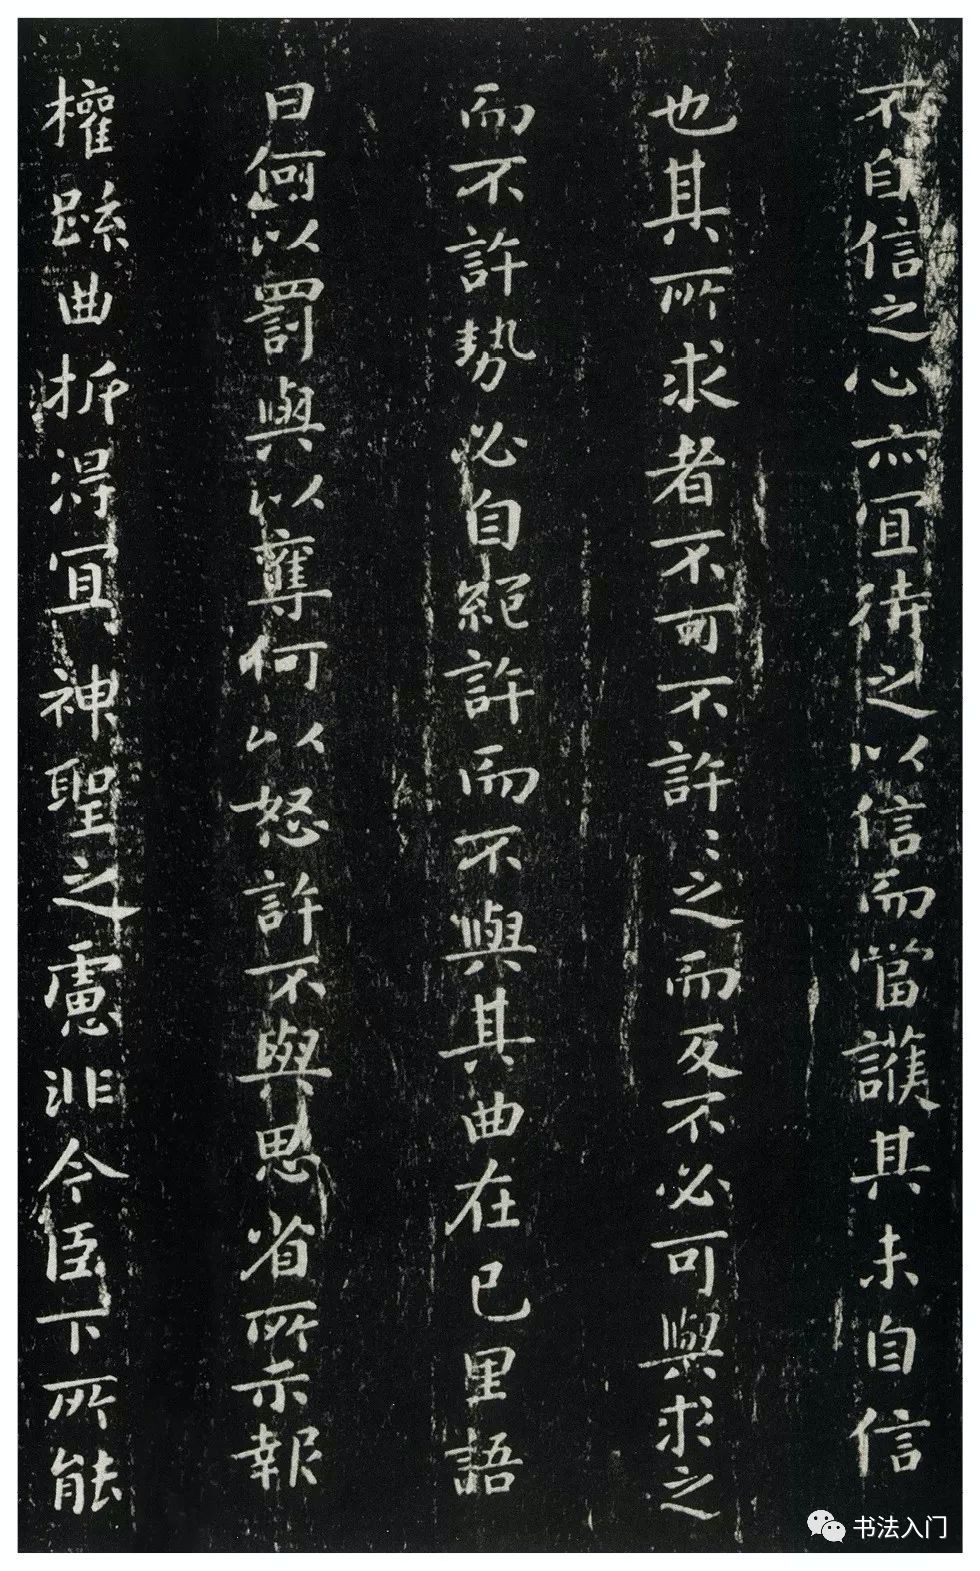 不自信之心亦宜待之以信而當護其未自信
也其所求者不可不許〻之而反不必可與求之
而不許勢必自絕許而不與其曲在己里語
曰何以罰與以奪何以怒許不與思省所示報
權疏曲折得宜神聖之慮非今臣下所能
书法入门